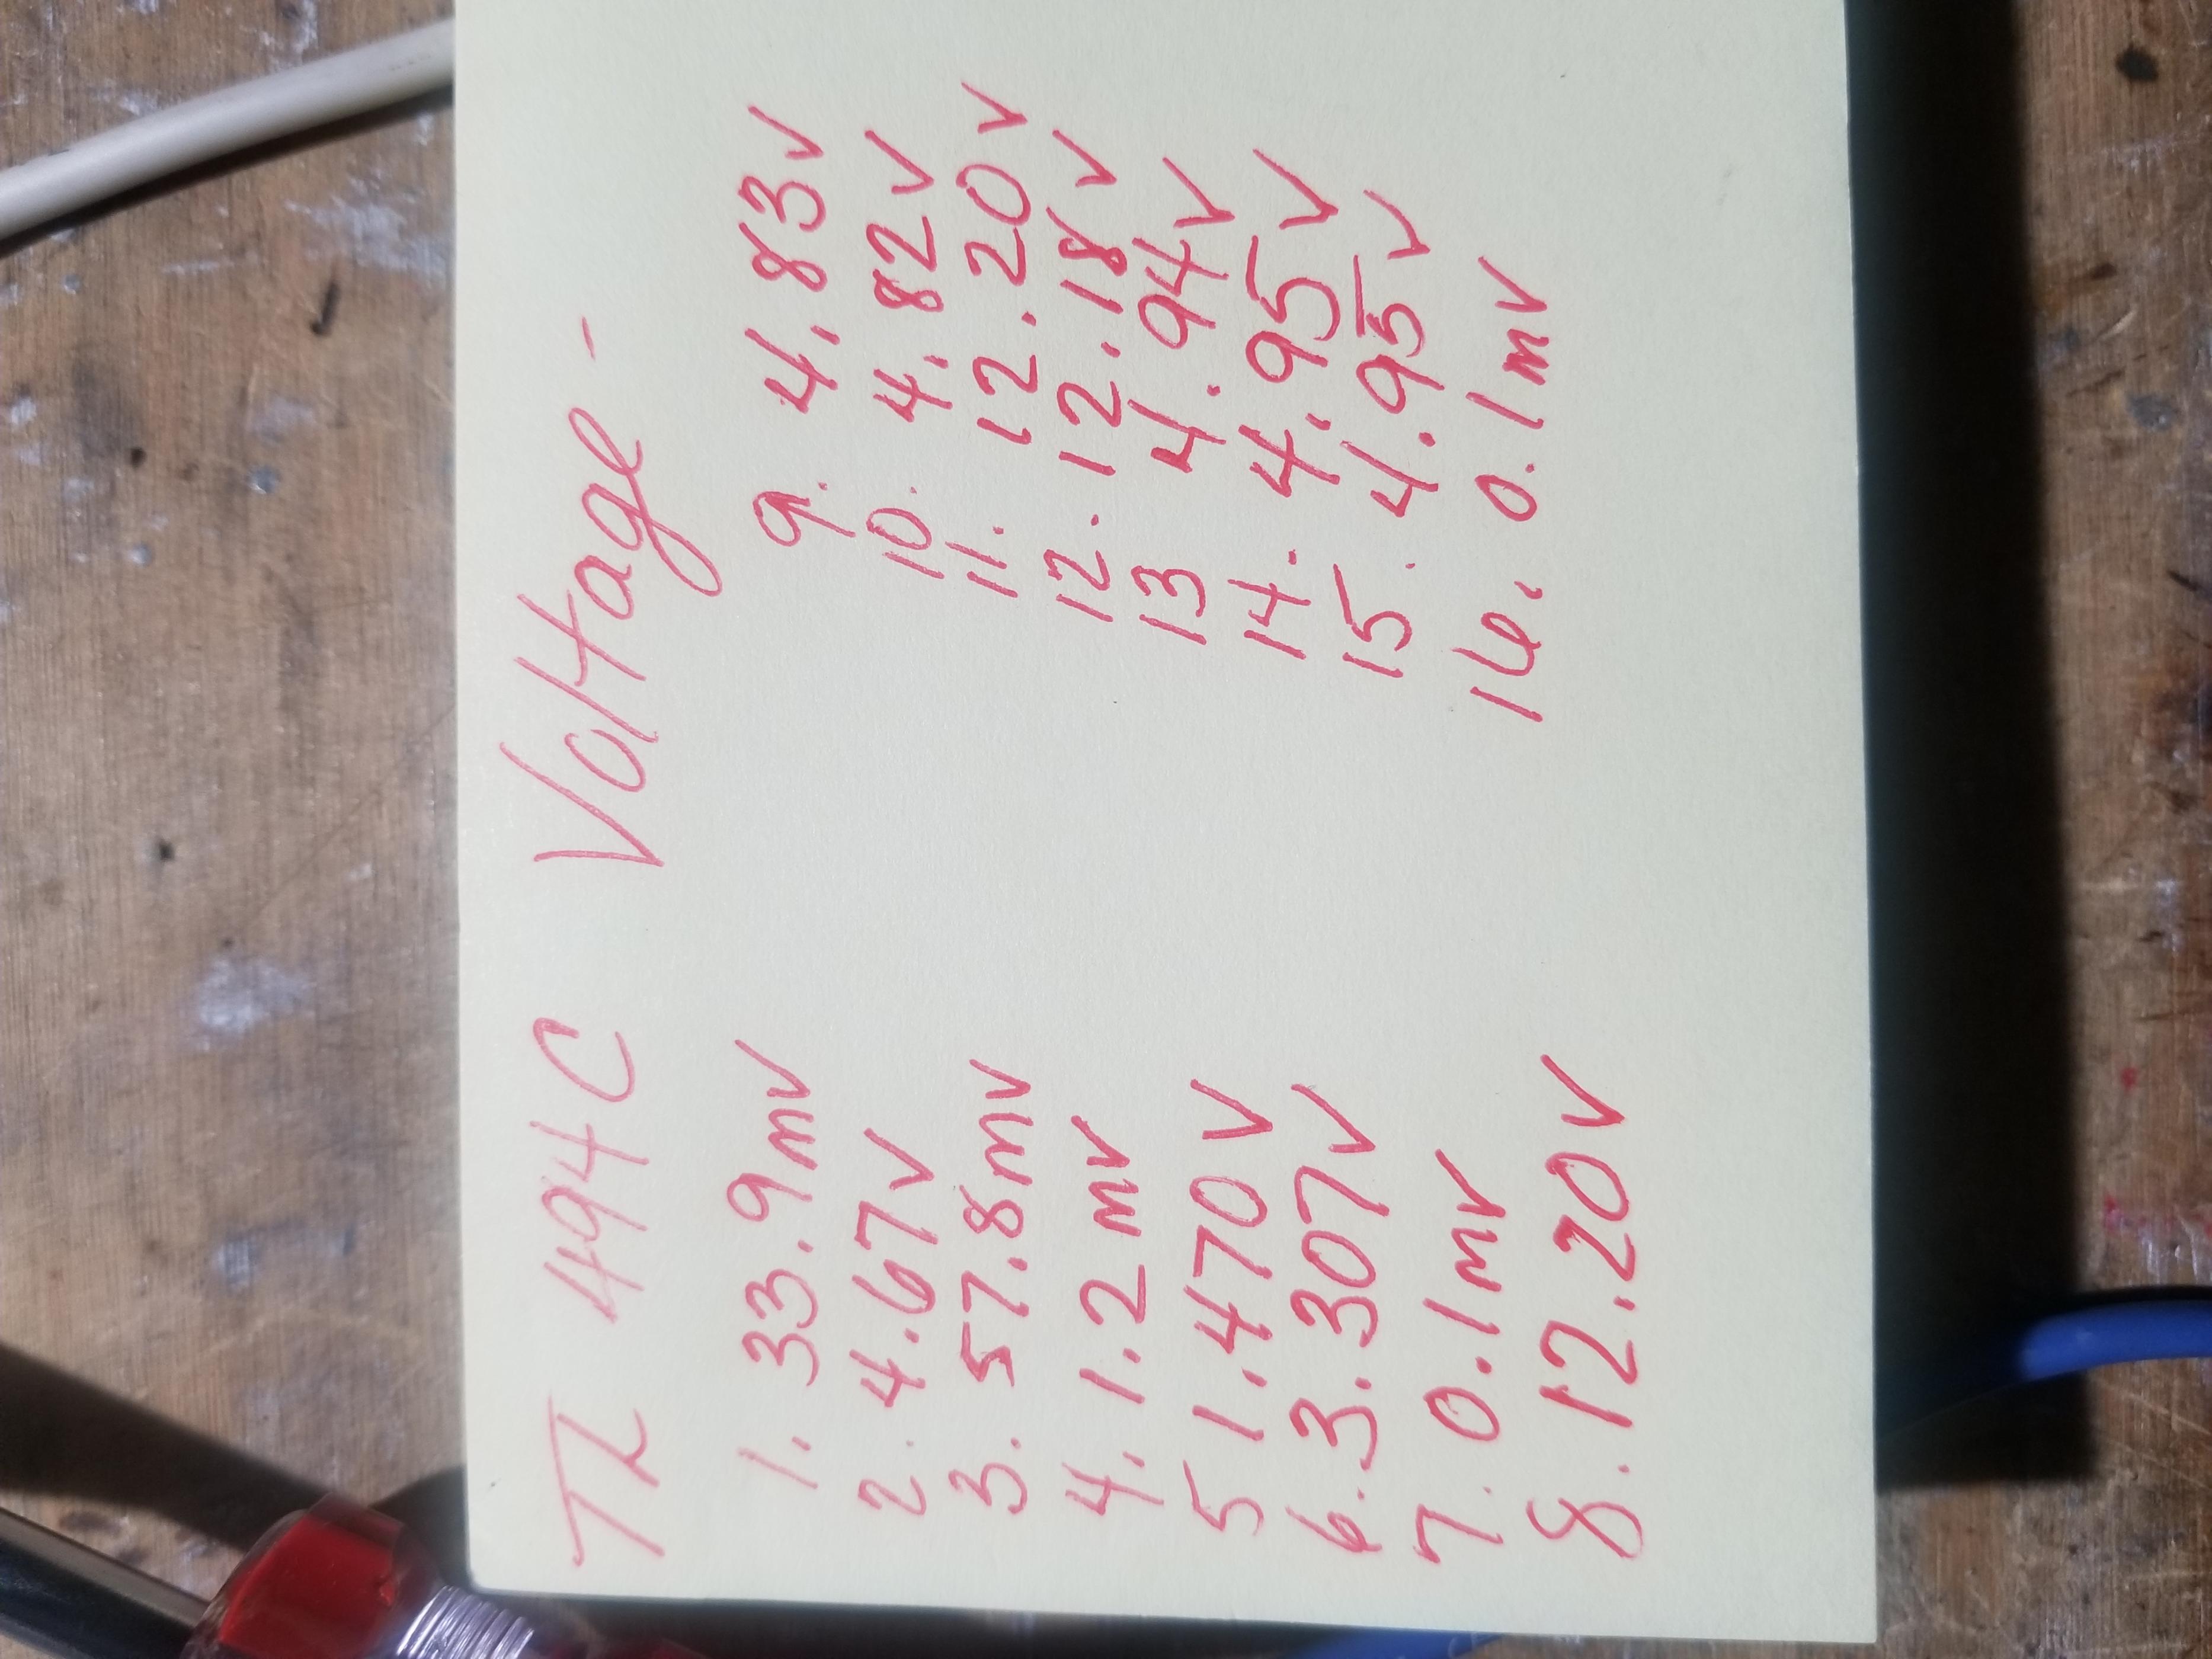 TL 494C Voltage -
1. 33.9mv
2. 4.67v
3. 57.8mv
4. 1.2mv
5 1.470V
6. 3.307v
7. 0.1mv
8. 12.20V
9. 4.83v
10. 4.82v
11. 12.20v
12. 12.18v
13 4.94v
14. 4.95V
15. 4.95v
16. 0.1mv